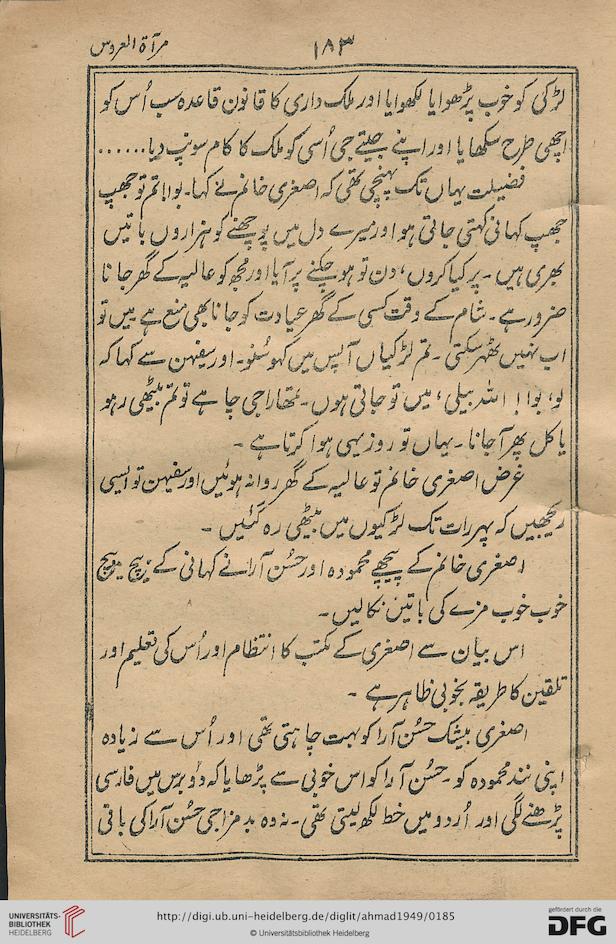 مرآۃ العروس
۱۸۳
لڑکی کو خوب پڑھوایا لکھوایا اور ملک داری کا قانون قاعدہ سب اُس کو
اچھی طرح سکھایا اور اپنے جیتے جی اُسی کو ملک کا کام سونپ دیا......
فضیلت یہاں تک پہنچی تھی کہ اصغری خانم نے کہا۔ بوا! تم تو جھپ
جھپ کہانی کہتی جاتی ہو اور میرے دل میں پوچھنے کو ہزاروں باتیں
بھری ہیں۔ پر کیا کروں، دن تو ہو چکنے پر آیا اور مجھ کو عالیہ کے گھر جانا
ضرور ہے۔ شام کے وقت کسی کے گھر عیادت کو جانا بھی منع ہے میں تو
اب نہیں ٹھہر سکتی۔ تم لڑکیاں آپس میں کہو سنو۔ اور سفیہن سے کہا کہ
لو، بوا! اللہ بیلی، میں تو جاتی ہوں۔ تمھارا جی چاہے تو تم بیٹھی رہو
یا کل پھر آجانا۔ یہاں تو روز یہی ہوا کرتا ہے۔
غرض اصغری خانم تو عالیہ کے گھر روانہ ہوئیں اور سفیہن تو ایسی
ریجھیں کہ پہر رات تک لڑکیوں میں بیٹھی رہ گئیں۔
اصغری خانم کے پیچھے محمودہ اور حُسن آرا نے کہانی کے بیچ بیچ
خوب خوب مزے کی باتیں نکالیں۔
اس بیان سے اصغری کے مکتب کا انتظام اور اُس کی تعلیم اور
تلقین کا طریقہ بخوبی ظاہر ہے۔
اصغری بیشک حُسن آرا کو بہت چاہتی تھی اور اُس سے زیادہ
اپنی نند محمودہ کو۔ حُسن آرا کو اس خوبی سے پڑھایا کہ دو برس میں فارسی
پڑھنے لگی اور اُردو میں خط لکھ لیتی تھی۔ نہ وہ بد مزاجی حُسن آرا کی باقی
UNIVERSITÄTS-
BIBLIOTHEK
HEIDELBERG
http://digi.ub.uni-heidelberg.de/diglit/ahmad1949/0185
© Universitätsbibliothek Heidelberg
gefördert durch die
DFG